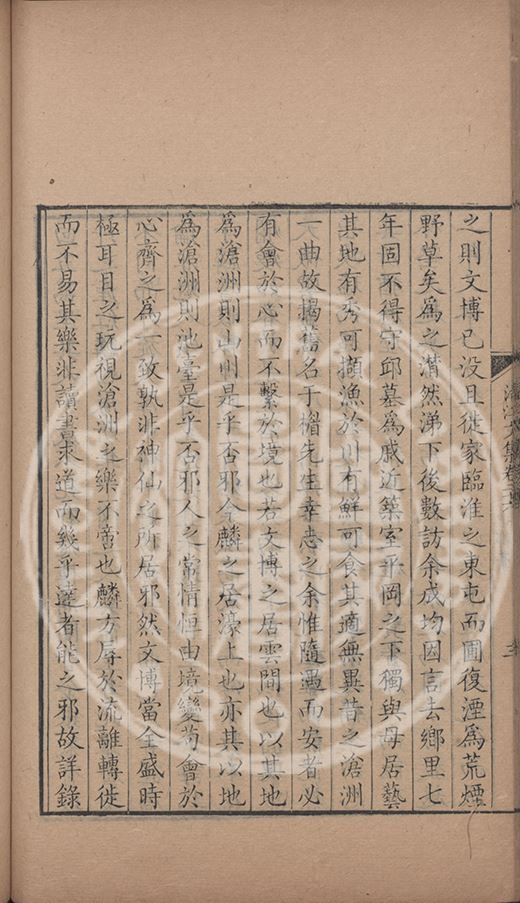 之則文博已没且徙家臨淮之東屯而圃復湮爲荒煙
野草矣爲之潸然涕下後數訪余成均因言去鄉里七
年固不得守邱墓爲戚近築室平岡之下獨與母居藝
其地有秀可擷漁於川有鮮可食其適無異昔之滄洲
一曲故揭舊名于楣先生幸志之余惟隨遇而安者必
有會於心而不繫於境也若文博之居雲間也以其地
爲滄洲則山川是乎否邪今麟之居濠上也亦其以地
爲滄洲則池臺是乎否邪人之常情恒由境變苟會於
心齊之爲一致孰非神仙之所居邪然文博當全盛時
極耳目之玩視滄洲之樂不啻也麟方辱於流離轉徙
而不易其樂非讀書求道而幾乎達者能之邪故詳錄